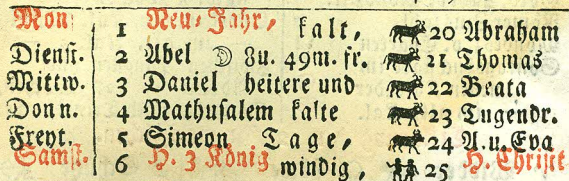 Mon. 1 Neu-Jahr, kalt, 20 Abraham
Dienst. 2 Abel ☽ 8u. 49m. fr. 21 Thomas
Mittw. 3 Daniel heitere und 22 Beata
Donn. 4 Mathusalem kalte 23 Tugendr.
Freyt. 5 Simeon Tage, 24 A. u. Eva
Samst. 6 H. 3 König windig, 25 H. Christ